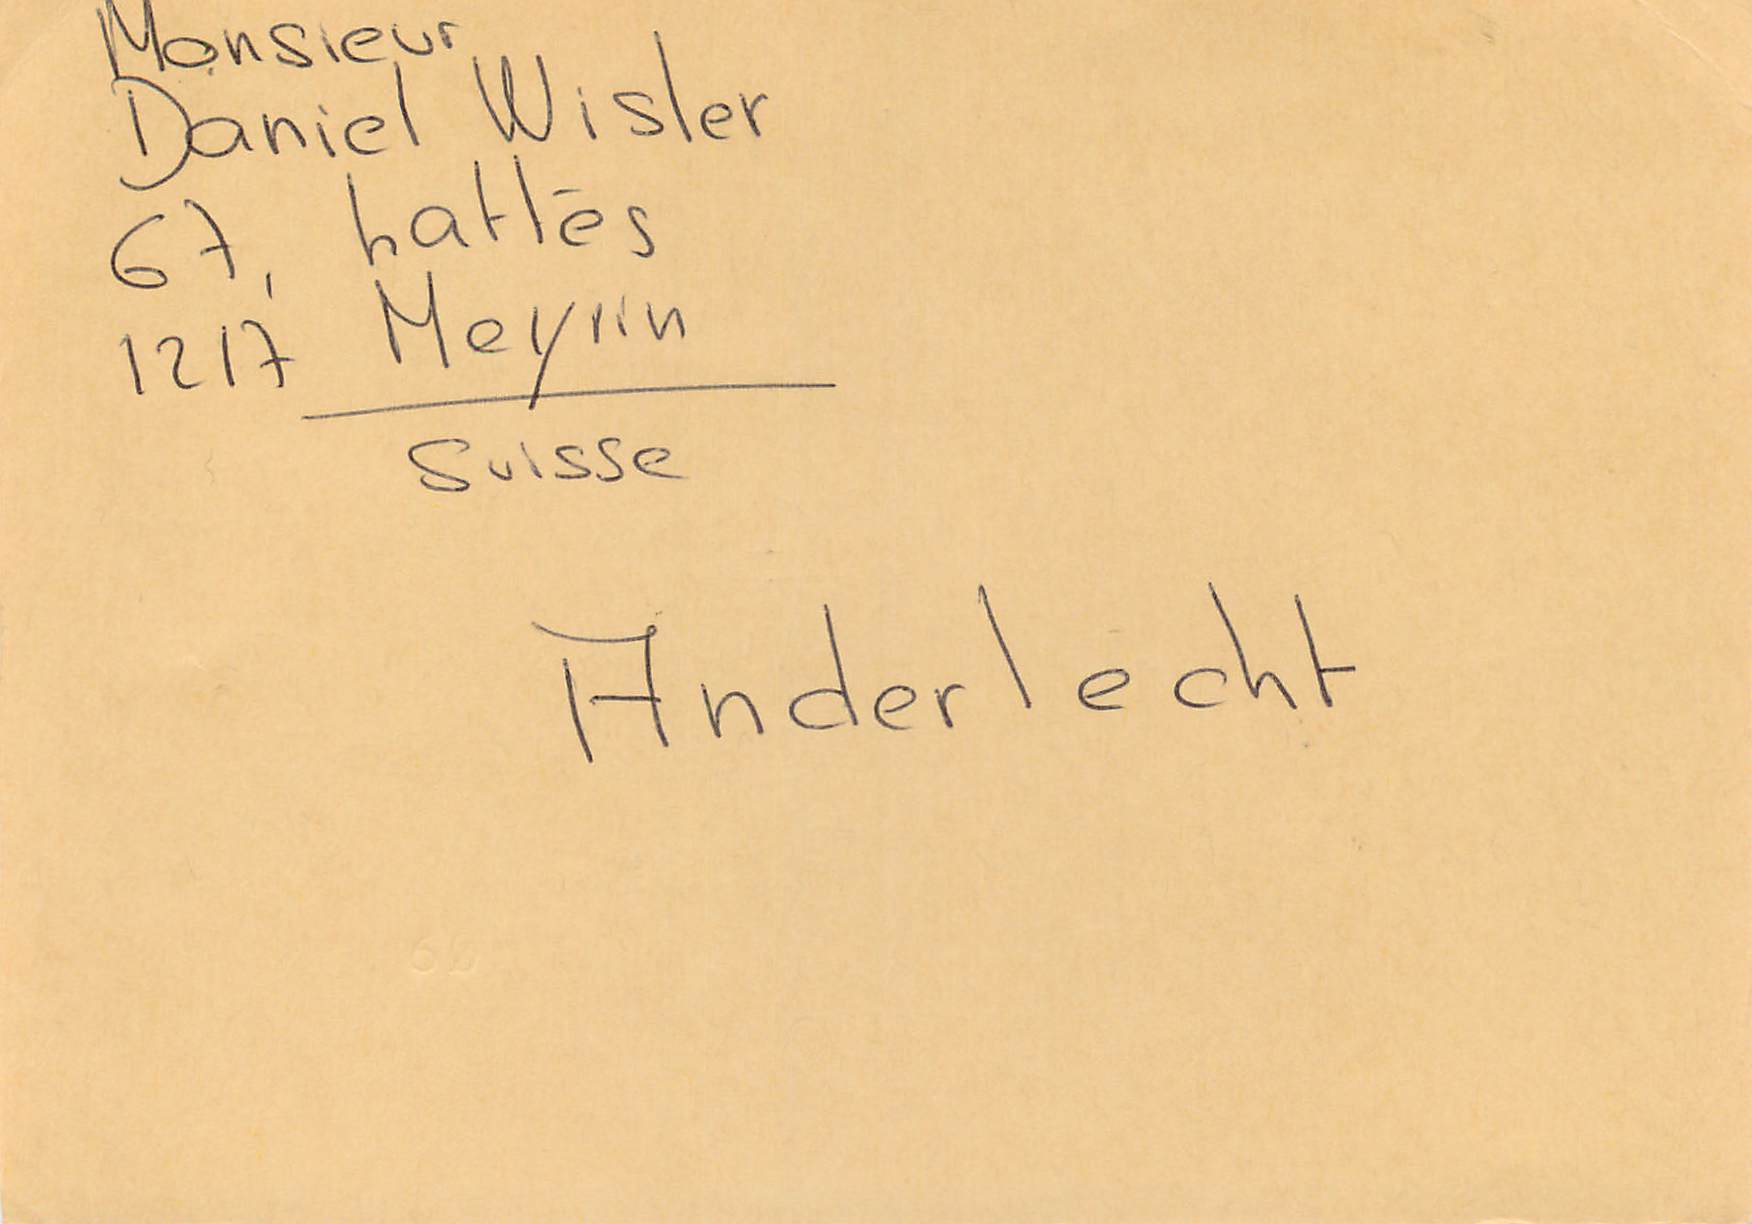 Monsieur
Daniel Wisler
67, Lattes
1217 Meyrin
Suisse
Anderlecht